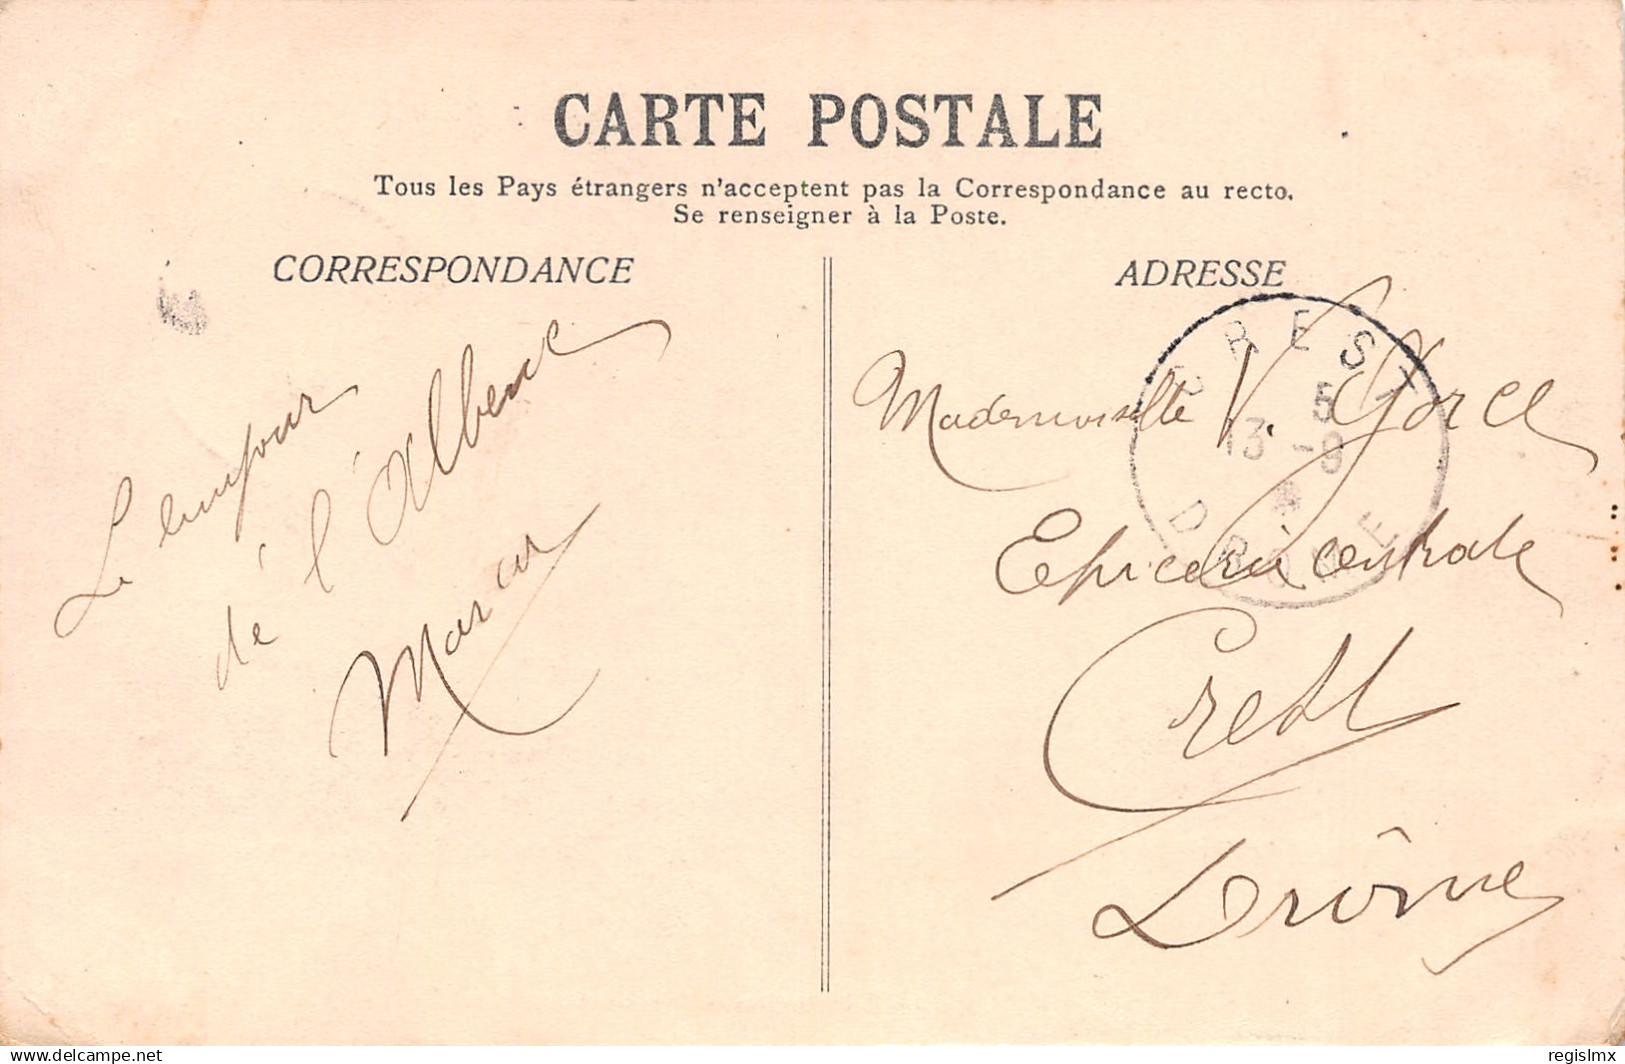 CARTE POSTALE
Tous les Pays étrangers n'acceptent pas la Correspondance au recto.
Se renseigner à la Poste.
CORRESPONDANCE
de l'Albenc
ADRESSE
CREST
5
13 -9
DROME
Mademoiselle V. Gorce
Epicerie centrale
Crest
Drôme
delcampe.net
regislmx